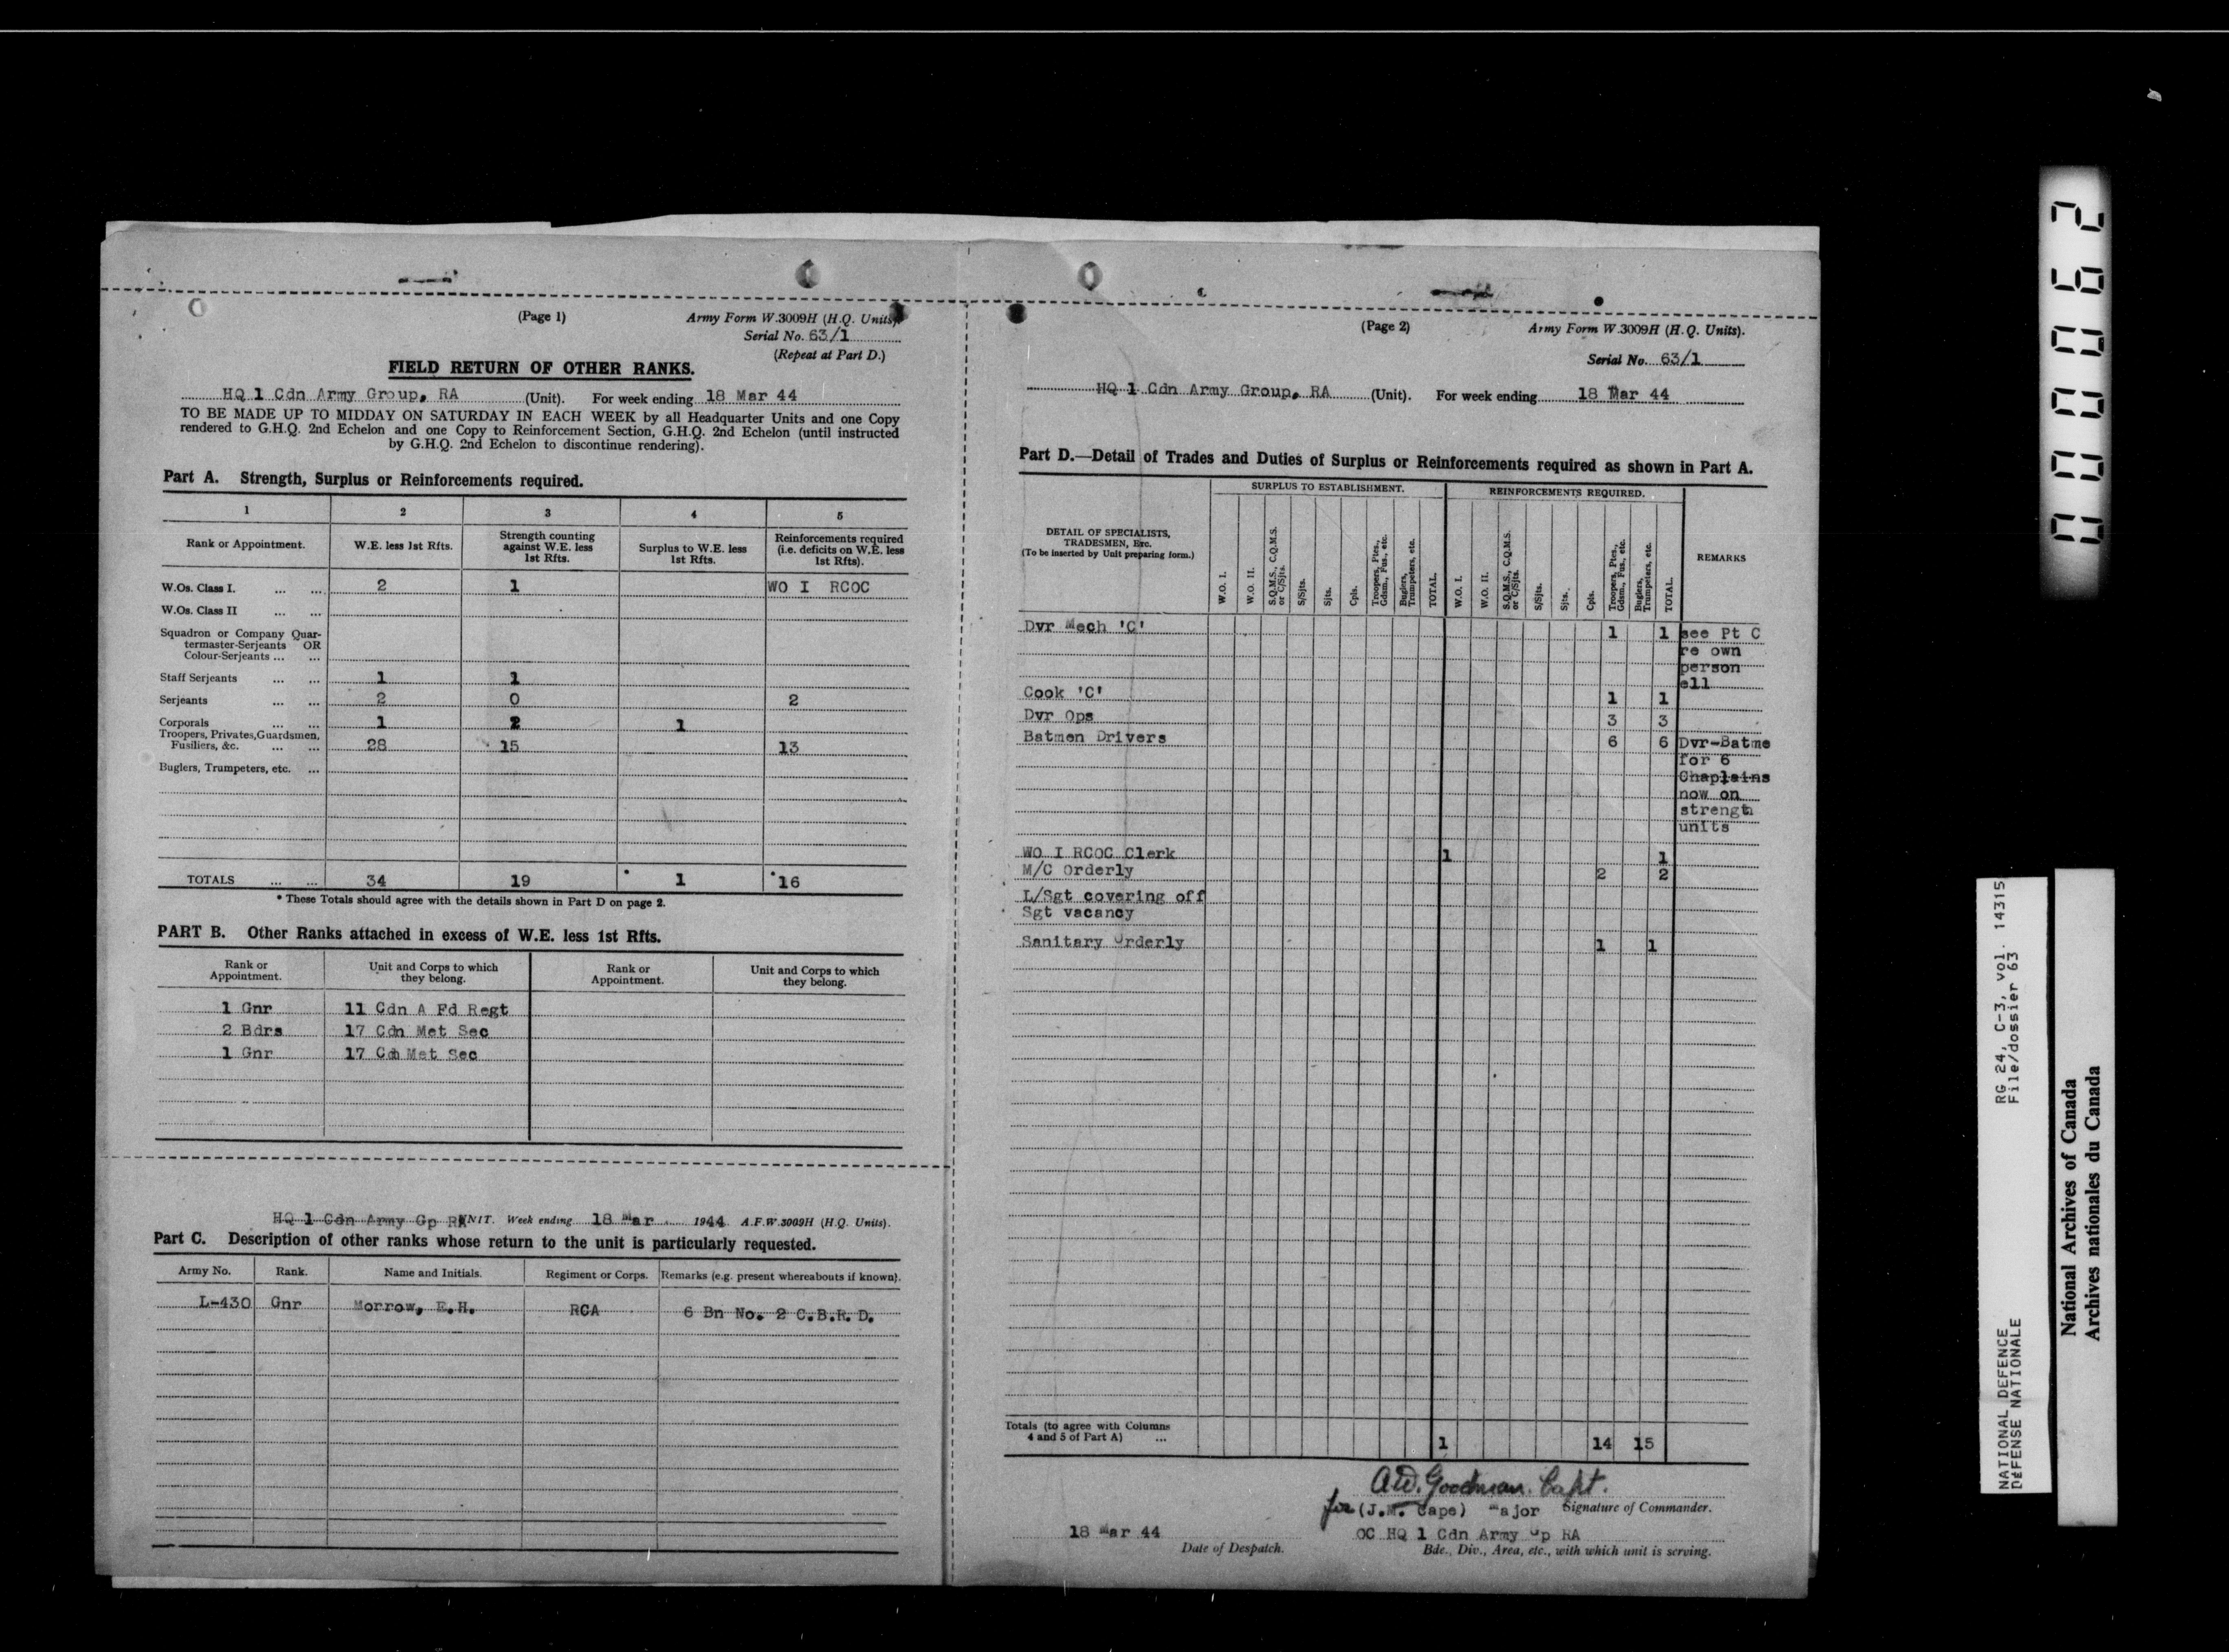 (Page 1) Army Form W.3009H (H.Q. Units).
Serial No. 63/1
(Repeat at Part D.)
FIELD RETURN OF OTHER RANKS.
HQ 1 Cdn Army Group, RA (Unit). For week ending 18 Mar 44
TO BE MADE UP TO MIDDAY ON SATURDAY IN EACH WEEK by all Headquarter Units and one Copy
rendered to G.H.Q. 2nd Echelon and one Copy to Reinforcement Section, G.H.Q. 2nd Echelon (until instructed
by G.H.Q. 2nd Echelon to discontinue rendering).
Part A. Strength, Surplus or Reinforcements required.
1 2 3 4 5
Rank or Appointment. W.E. less 1st Rfts. Strength counting against W.E. less 1st Rfts. Surplus to W.E. less 1st Rfts. Reinforcements required (i.e. deficits on W.E. less 1st Rfts).
W.Os. Class I. ... ... 2 1 WO I RCOC
W.Os. Class II ... ...
Squadron or Company Quar-
termaster-Serjeants OR
Colour-Serjeants ... ...
Staff Serjeants ... ... 1 1
Serjeants ... ... 2 0 2
Corporals ... ... 1 2 1
Troopers, Privates, Guardsmen,
Fusiliers, &c. ... ... 28 15 13
Buglers, Trumpeters, etc. ...
TOTALS ... ... 34 19 * 1 * 16
* These Totals should agree with the details shown in Part D on page 2.
PART B. Other Ranks attached in excess of W.E. less 1st Rfts.
Rank or Appointment. Unit and Corps to which they belong. Rank or Appointment. Unit and Corps to which they belong.
1 Gnr 11 Cdn A Fd Regt
2 Bdrs 17 Cdn Met Sec
1 Gnr 17 Cdn Met Sec
HQ 1 Cdn Army Gp RA UNIT. Week ending 18 Mar 1944 A.F.W.3009H (H.Q. Units).
Part C. Description of other ranks whose return to the unit is particularly requested.
Army No. Rank. Name and Initials. Regiment or Corps. Remarks (e.g. present whereabouts if known).
L-430 Gnr Morrow, E.H. RCA 6 Bn No. 2 C.B.R.D.
(Page 2) Army Form W.3009H (H.Q. Units).
Serial No. 63/1
HQ 1 Cdn Army Group, RA (Unit). For week ending 18 Mar 44
Part D.—Detail of Trades and Duties of Surplus or Reinforcements required as shown in Part A.
SURPLUS TO ESTABLISHMENT. REINFORCEMENTS REQUIRED.
DETAIL OF SPECIALISTS,
TRADESMEN, Etc.
(To be inserted by Unit preparing form.)
W.O. I. W.O. II. S.Q.M.S., C.Q.M.S. or C/Sjts. S/Sjts. Sjts. Cpls. Troopers, Ptes., Gdsm., Fus., etc. Buglers, Trumpeters, etc. TOTAL. W.O. I. W.O. II. S.Q.M.S., C.Q.M.S. or C/Sjts. S/Sjts. Sjts. Cpls. Troopers, Ptes., Gdsm., Fus., etc. Buglers, Trumpeters, etc. TOTAL. REMARKS
Dvr Mech 'C' 1 1 see Pt C
re own
person
ell
Cook 'C' 1 1
Dvr Ops 3 3
Batmen Drivers 6 6 Dvr-Batme
for 6
Chaplains
now on
strength
units
WO I RCOC Clerk 1 1
M/C Orderly 2 2
L/Sgt covering off
Sgt vacancy
Sanitary Orderly 1 1
Totals (to agree with Columns
4 and 5 of Part A) ... 1 14 15
A.W. Goodman. Capt.
for (J.M. Cape) Major Signature of Commander.
18 Mar 44 OC HQ 1 Cdn Army Gp RA
Date of Despatch. Bde., Div., Area, etc., with which unit is serving.
000062
RG 24, C-3, vol. 14315
File/dossier 63
NATIONAL DEFENCE
DEFENSE NATIONALE
National Archives of Canada
Archives nationales du Canada